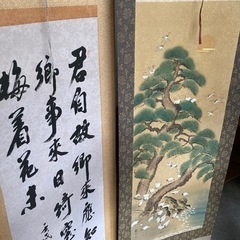 君自故鄉來應知
鄉事來日綺窗
梅着花未